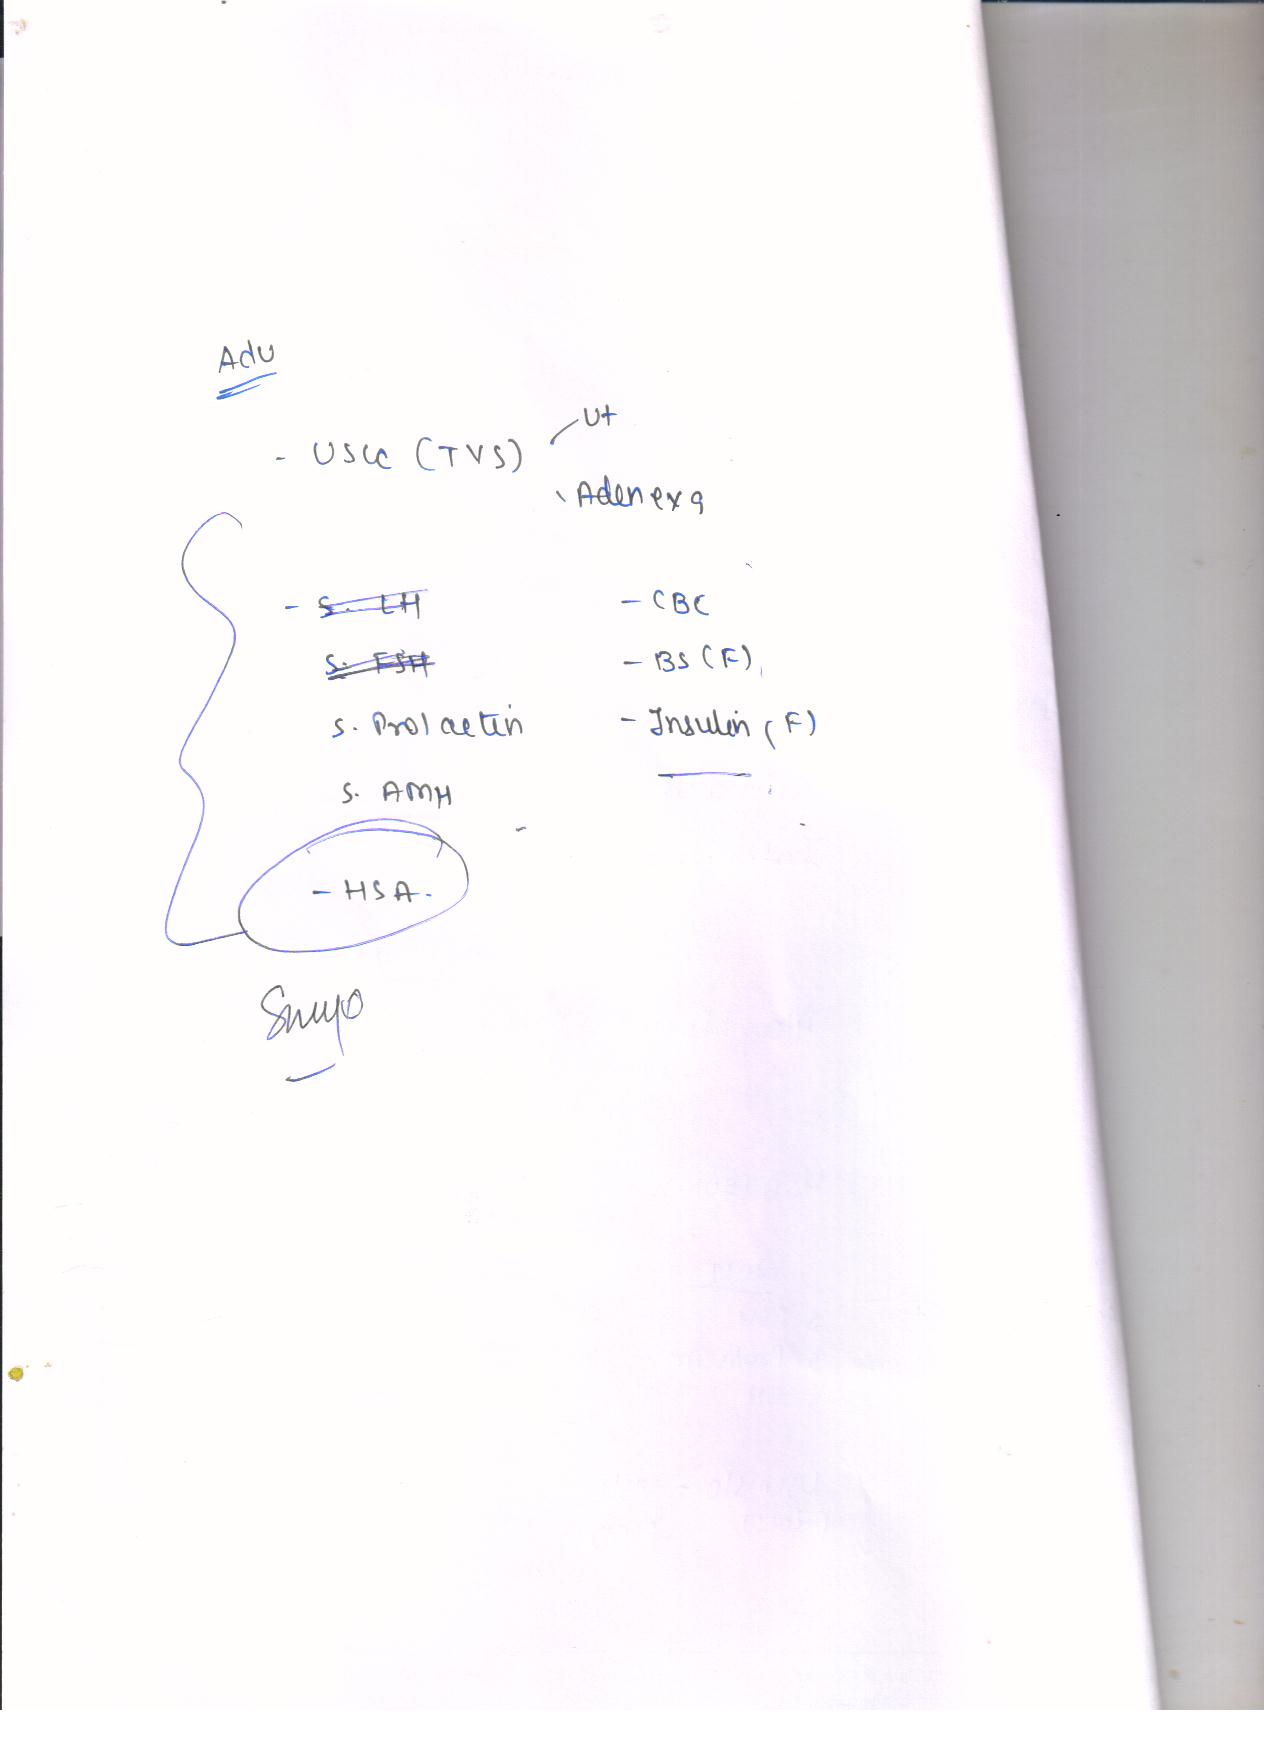 Adv
- USG (TVS) Ut
Adenexa
- S. LH - CBC
S. FSH - BS (F)
S. Prolactin - Insulin (F)
S. AMH
- HSA.